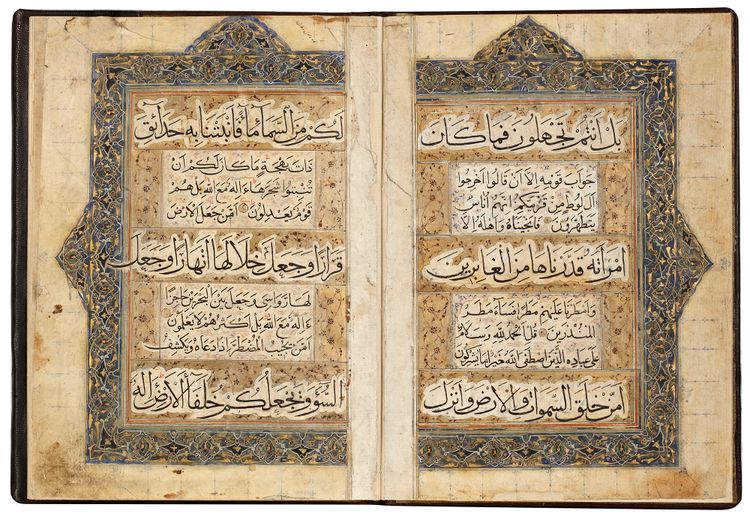 بل انتم تجهلون فما كان
جواب قومه الا ان قالوا اخرجوا
آل لوط من قريتكم انهم اناس
يتطهرون فانجيناه واهله الا
امراته قدرناها من الغابرين
وامطرنا عليهم مطرا فساء مطر
المنذرين قل الحمد لله وسلام
على عباده الذين اصطفى الله خير اما يشركون
امن خلق السموات والارض وانزل
لكم من السماء ماء فانبتنا به حدائق
ذات بهجة ما كان لكم ان
تنبتوا شجرها ءاله مع الله بل هم
قوم يعدلون امن جعل الارض
قرارا وجعل خلالها انهارا وجعل
لها رواسي وجعل بين البحرين حاجزا
ءاله مع الله بل اكثرهم لا يعلمون
امن يجيب المضطر اذا دعاه ويكشف
السوء ويجعلكم خلفاء الارض اله